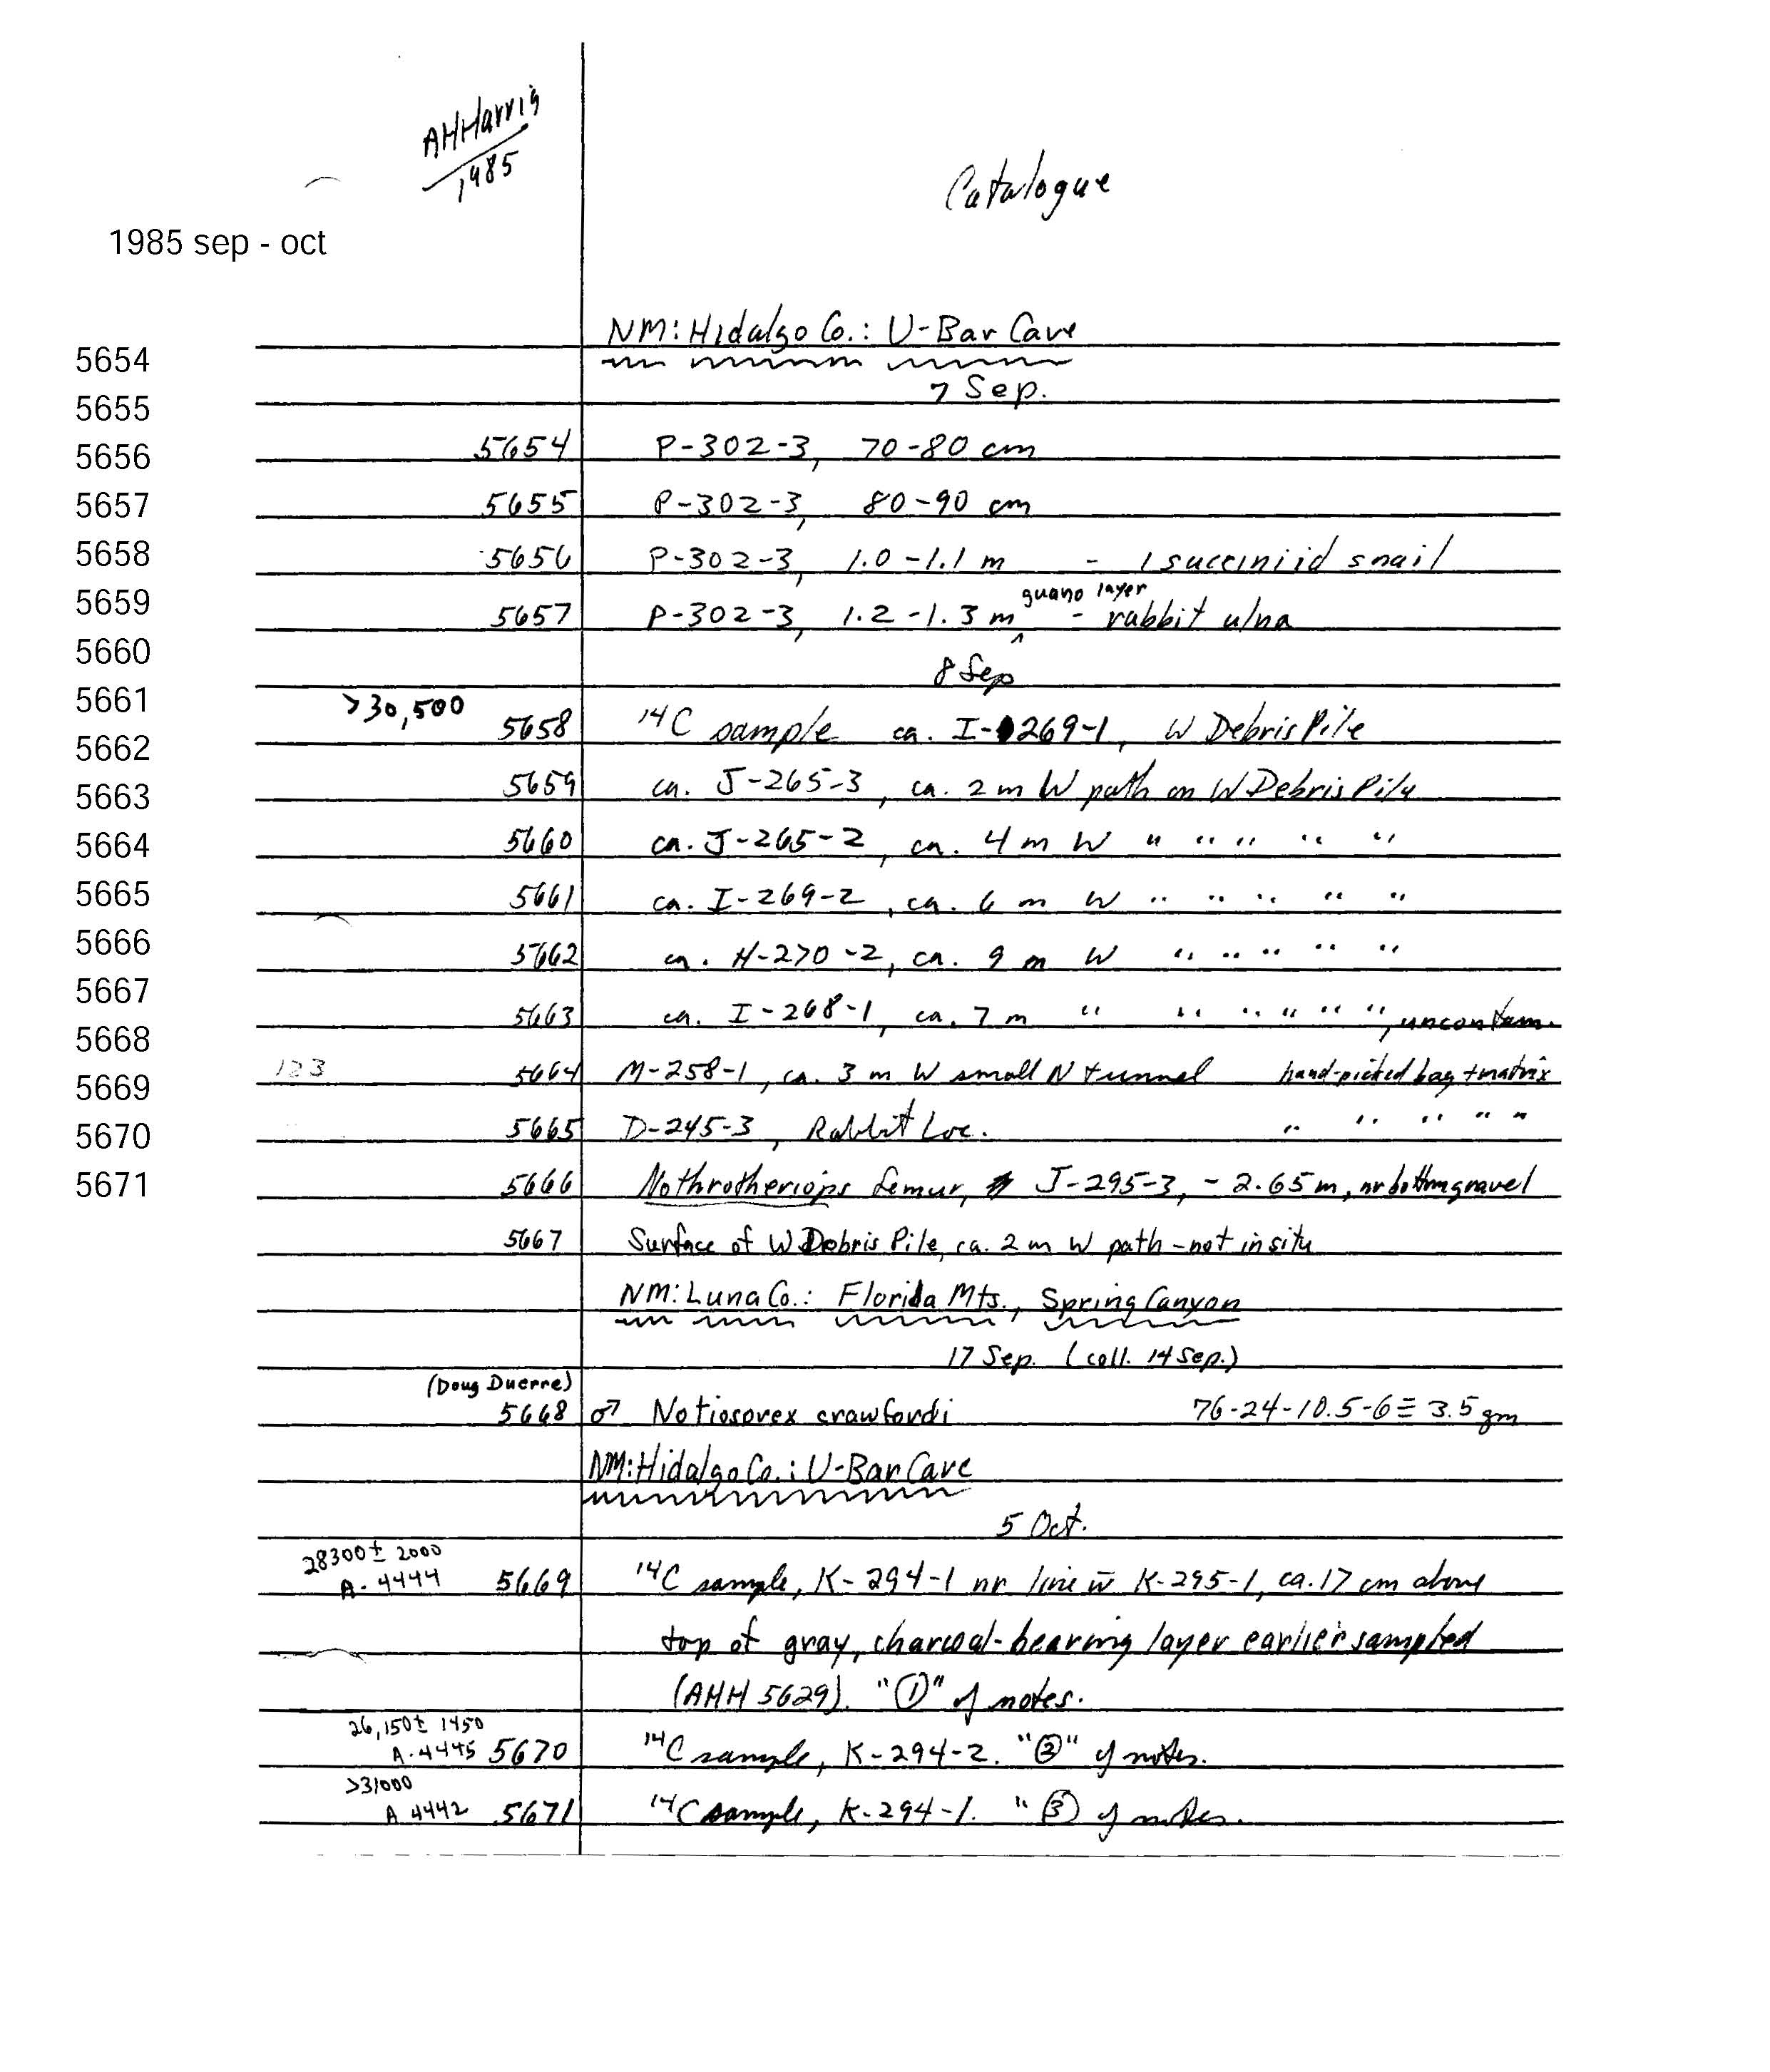 AHHarris
1985
Catalogue
1985 sep - oct
NM: Hidalgo Co.: U-Bar Cave
7 Sep.
5654 P-302-3, 70-80 cm
5655 P-302-3, 80-90 cm
5656 P-302-3, 1.0-1.1 m - 1 succiniid snail
guano layer
5657 P-302-3, 1.2-1.3 m ^ - rabbit ulna
8 Sep
>30,500 5658 14C sample ca. I-269-1, W Debris Pile
5659 ca. J-265-3, ca. 2 m W path on W Debris Pile
5660 ca. J-265-2, ca. 4 m W " " " " "
5661 ca. I-269-2, ca. 6 m W " " " " "
5662 ca. H-270-2, ca. 9 m W " " " " "
5663 ca. I-268-1, ca. 7 m " " " " " ", uncontam.
123 5664 M-258-1, ca. 3 m W small N tunnel hand-picked bag + matrix
5665 D-245-3, Rabbit Loc. " " " " "
5666 Nothrotheriops femur, J-295-3, - 2.65 m, nr bottom gravel
5667 Surface of W Debris Pile, ca. 2 m W path - not in situ
NM: Luna Co.: Florida Mts., Spring Canyon
17 Sep. (coll. 14 Sep.)
(Doug Duerre)
5668 ♂ Notiosorex crawfordi 76-24-10.5-6≡3.5 gm
NM: Hidalgo Co.: U-Bar Cave
5 Oct.
28300± 2000
A-4444 5669 14C sample, K-294-1 nr line w̄ K-295-1, ca. 17 cm above
top of gray, charcoal-bearing layer earlier sampled
(AHH 5629). "①" of notes.
26,150± 1450
A-4445 5670 14C sample, K-294-2. "②" of notes.
>31000
A 4442 5671 14C sample, K-294-1. "③ of notes.
5654
5655
5656
5657
5658
5659
5660
5661
5662
5663
5664
5665
5666
5667
5668
5669
5670
5671